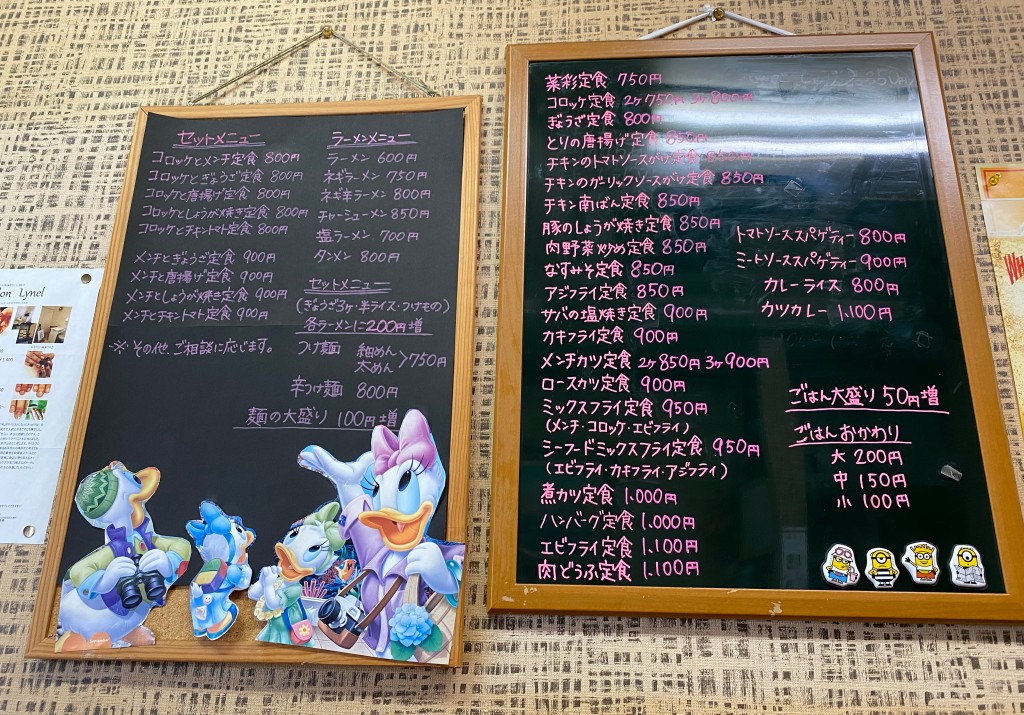 セットメニュー
コロッケとメンチ定食 800円
コロッケとぎょうざ定食 800円
コロッケと唐揚げ定食 800円
コロッケとしょうが焼き定食 800円
コロッケとチキントマト定食 800円
メンチとぎょうざ定食 900円
メンチと唐揚げ定食 900円
メンチとしょうが焼き定食 900円
メンチとチキントマト定食 900円
※その他、ご相談に応じます。
ラーメンメニュー
ラーメン 600円
ネギラーメン 750円
ネギ辛ラーメン 800円
チャーシューメン 850円
塩ラーメン 700円
タンメン 800円
セットメニュー
(ぎょうざ3ヶ・半ライス・つけもの)
各ラーメンに200円増
つけ麺 細めん 太めん > 750円
辛つけ麺 800円
麺の大盛り 100円増
菜彩定食 750円
コロッケ定食 2ヶ750円 3ヶ800円
ぎょうざ定食 800円
とりの唐揚げ定食 850円
チキンのトマトソースがけ定食 850円
チキンのガーリックソースがけ定食 850円
チキン南ばん定食 850円
豚のしょうが焼き定食 850円
肉野菜炒め定食 850円
なすみそ定食 850円
アジフライ定食 850円
サバの塩焼き定食 900円
カキフライ定食 900円
メンチカツ定食 2ヶ850円 3ヶ900円
ロースカツ定食 900円
ミックスフライ定食 950円
(メンチ・コロッケ・エビフライ)
シーフードミックスフライ定食 950円
(エビフライ・カキフライ・アジフライ)
煮カツ定食 1.000円
ハンバーグ定食 1.000円
エビフライ定食 1.100円
肉どうふ定食 1.100円
トマトソーススパゲティー 800円
ミートソーススパゲティー 900円
カレーライス 800円
カツカレー 1.100円
ごはん大盛り 50円増
ごはんおかわり
大 200円
中 150円
小 100円
Lynel